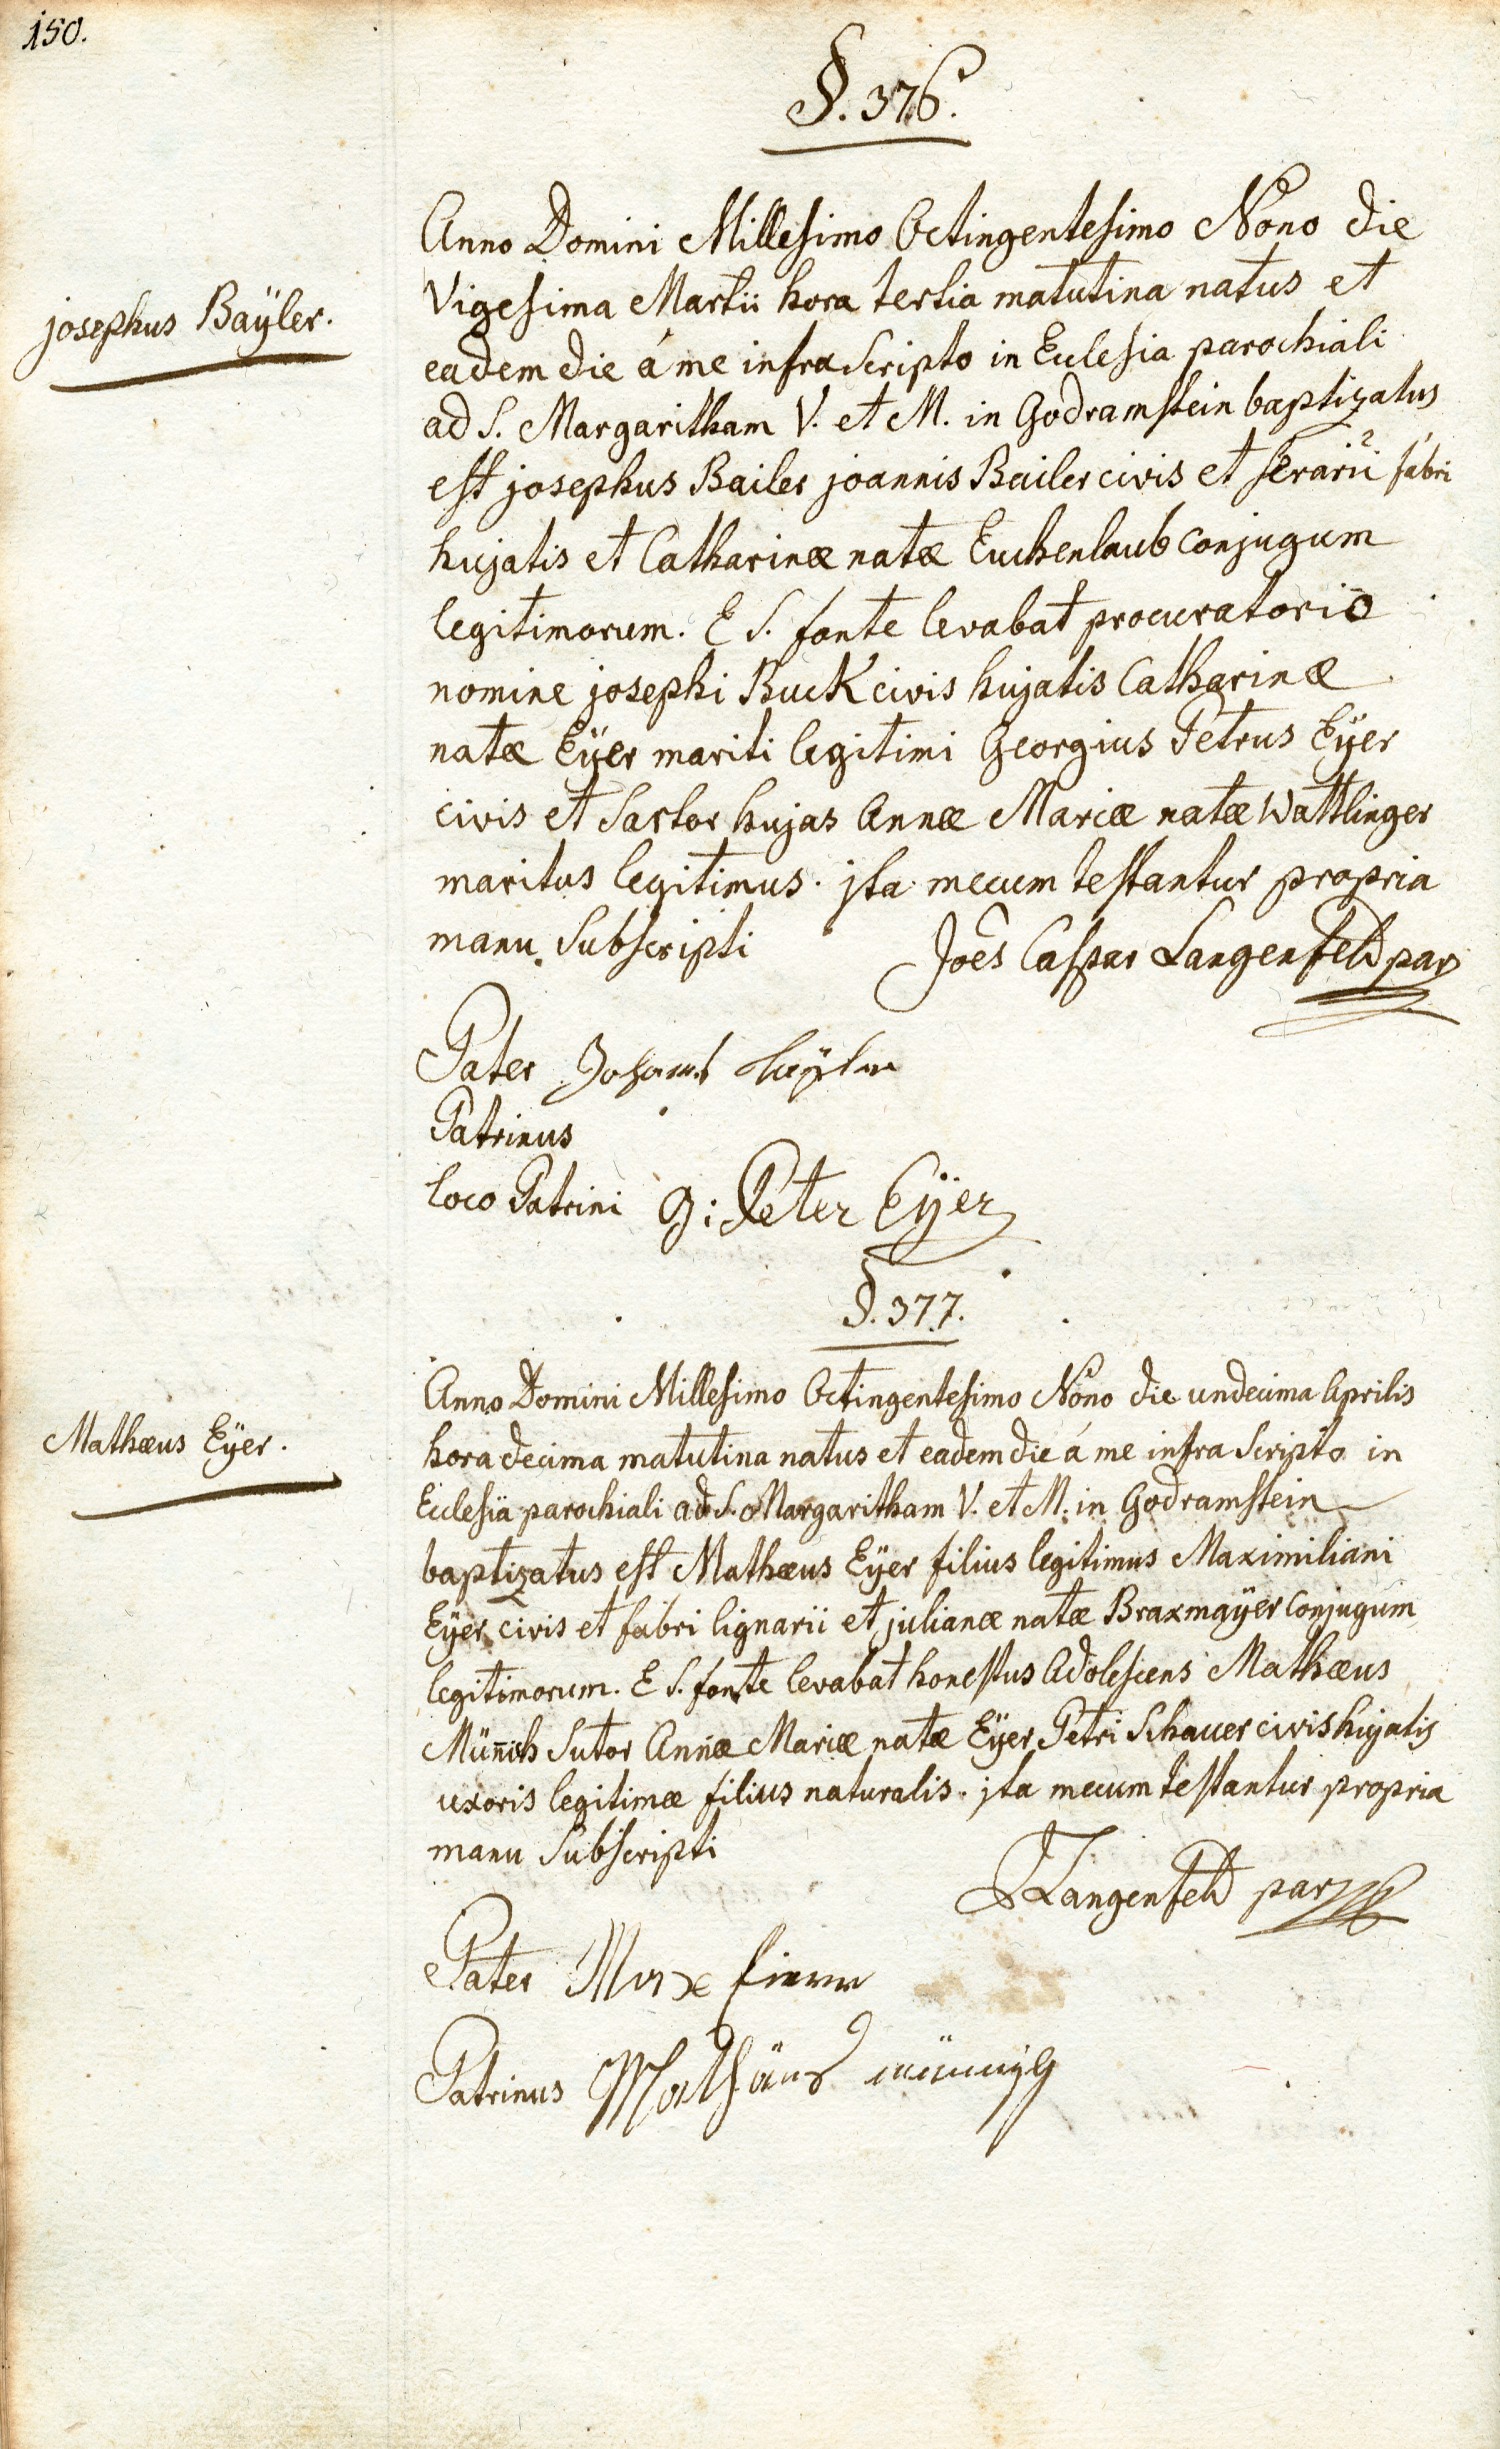 150.
§. 376.
josephus Baÿler.
Anno Domini Millesimo Octingentesimo Nono die
Vigesima Martii hora tertia matutina natus et
eadem die á me infra scripto in Ecclesia parochiali
ad S. Margaritham V. et M. in Godramstein baptizatus
est josephus Bailer joannis Bailer civis et serarii fabri
hujatis et Catharinæ natæ Euchenlaub conjugum
legitimorum. E S. fonte levabat procuratorio
nomine josephi Buck civis hujatis Catharinæ
natæ Eÿer mariti legitimi Georgius Petrus Eÿer
civis et Sartor hujas Annæ Mariæ natæ Wattlinger
maritus legitimus. jta mecum testantur propria
manu subscripti Joēs Caspar Langenfeld par
Pater Johannes
Patrinus
loco Patrini G: Peter Eÿer
§. 377.
Mathæus Eÿer.
Anno Domini Millesimo Octingentesimo Nono die undecima Aprilis
hora decima matutina natus et eadem die á me infra scripto in
Ecclesia parochiali ad S. Margaritham V. et M. in Godramstein
baptizatus est Mathæus Eÿer filius legitimus Maximiliani
Eÿer civis et fabri lignarii et julianæ natæ Braxmaÿer conjugum
legitimorum. E S. fonte levabat honestus Adolescens Mathæus
Münich Sutor Annæ Mariæ natæ Eÿer Petri Schauer civis hujatis
uxoris legitimæ filius naturalis. jta mecum testantur propria
manu subscripti
Langenfeld par
Pater Max
Patrinus Mathäus